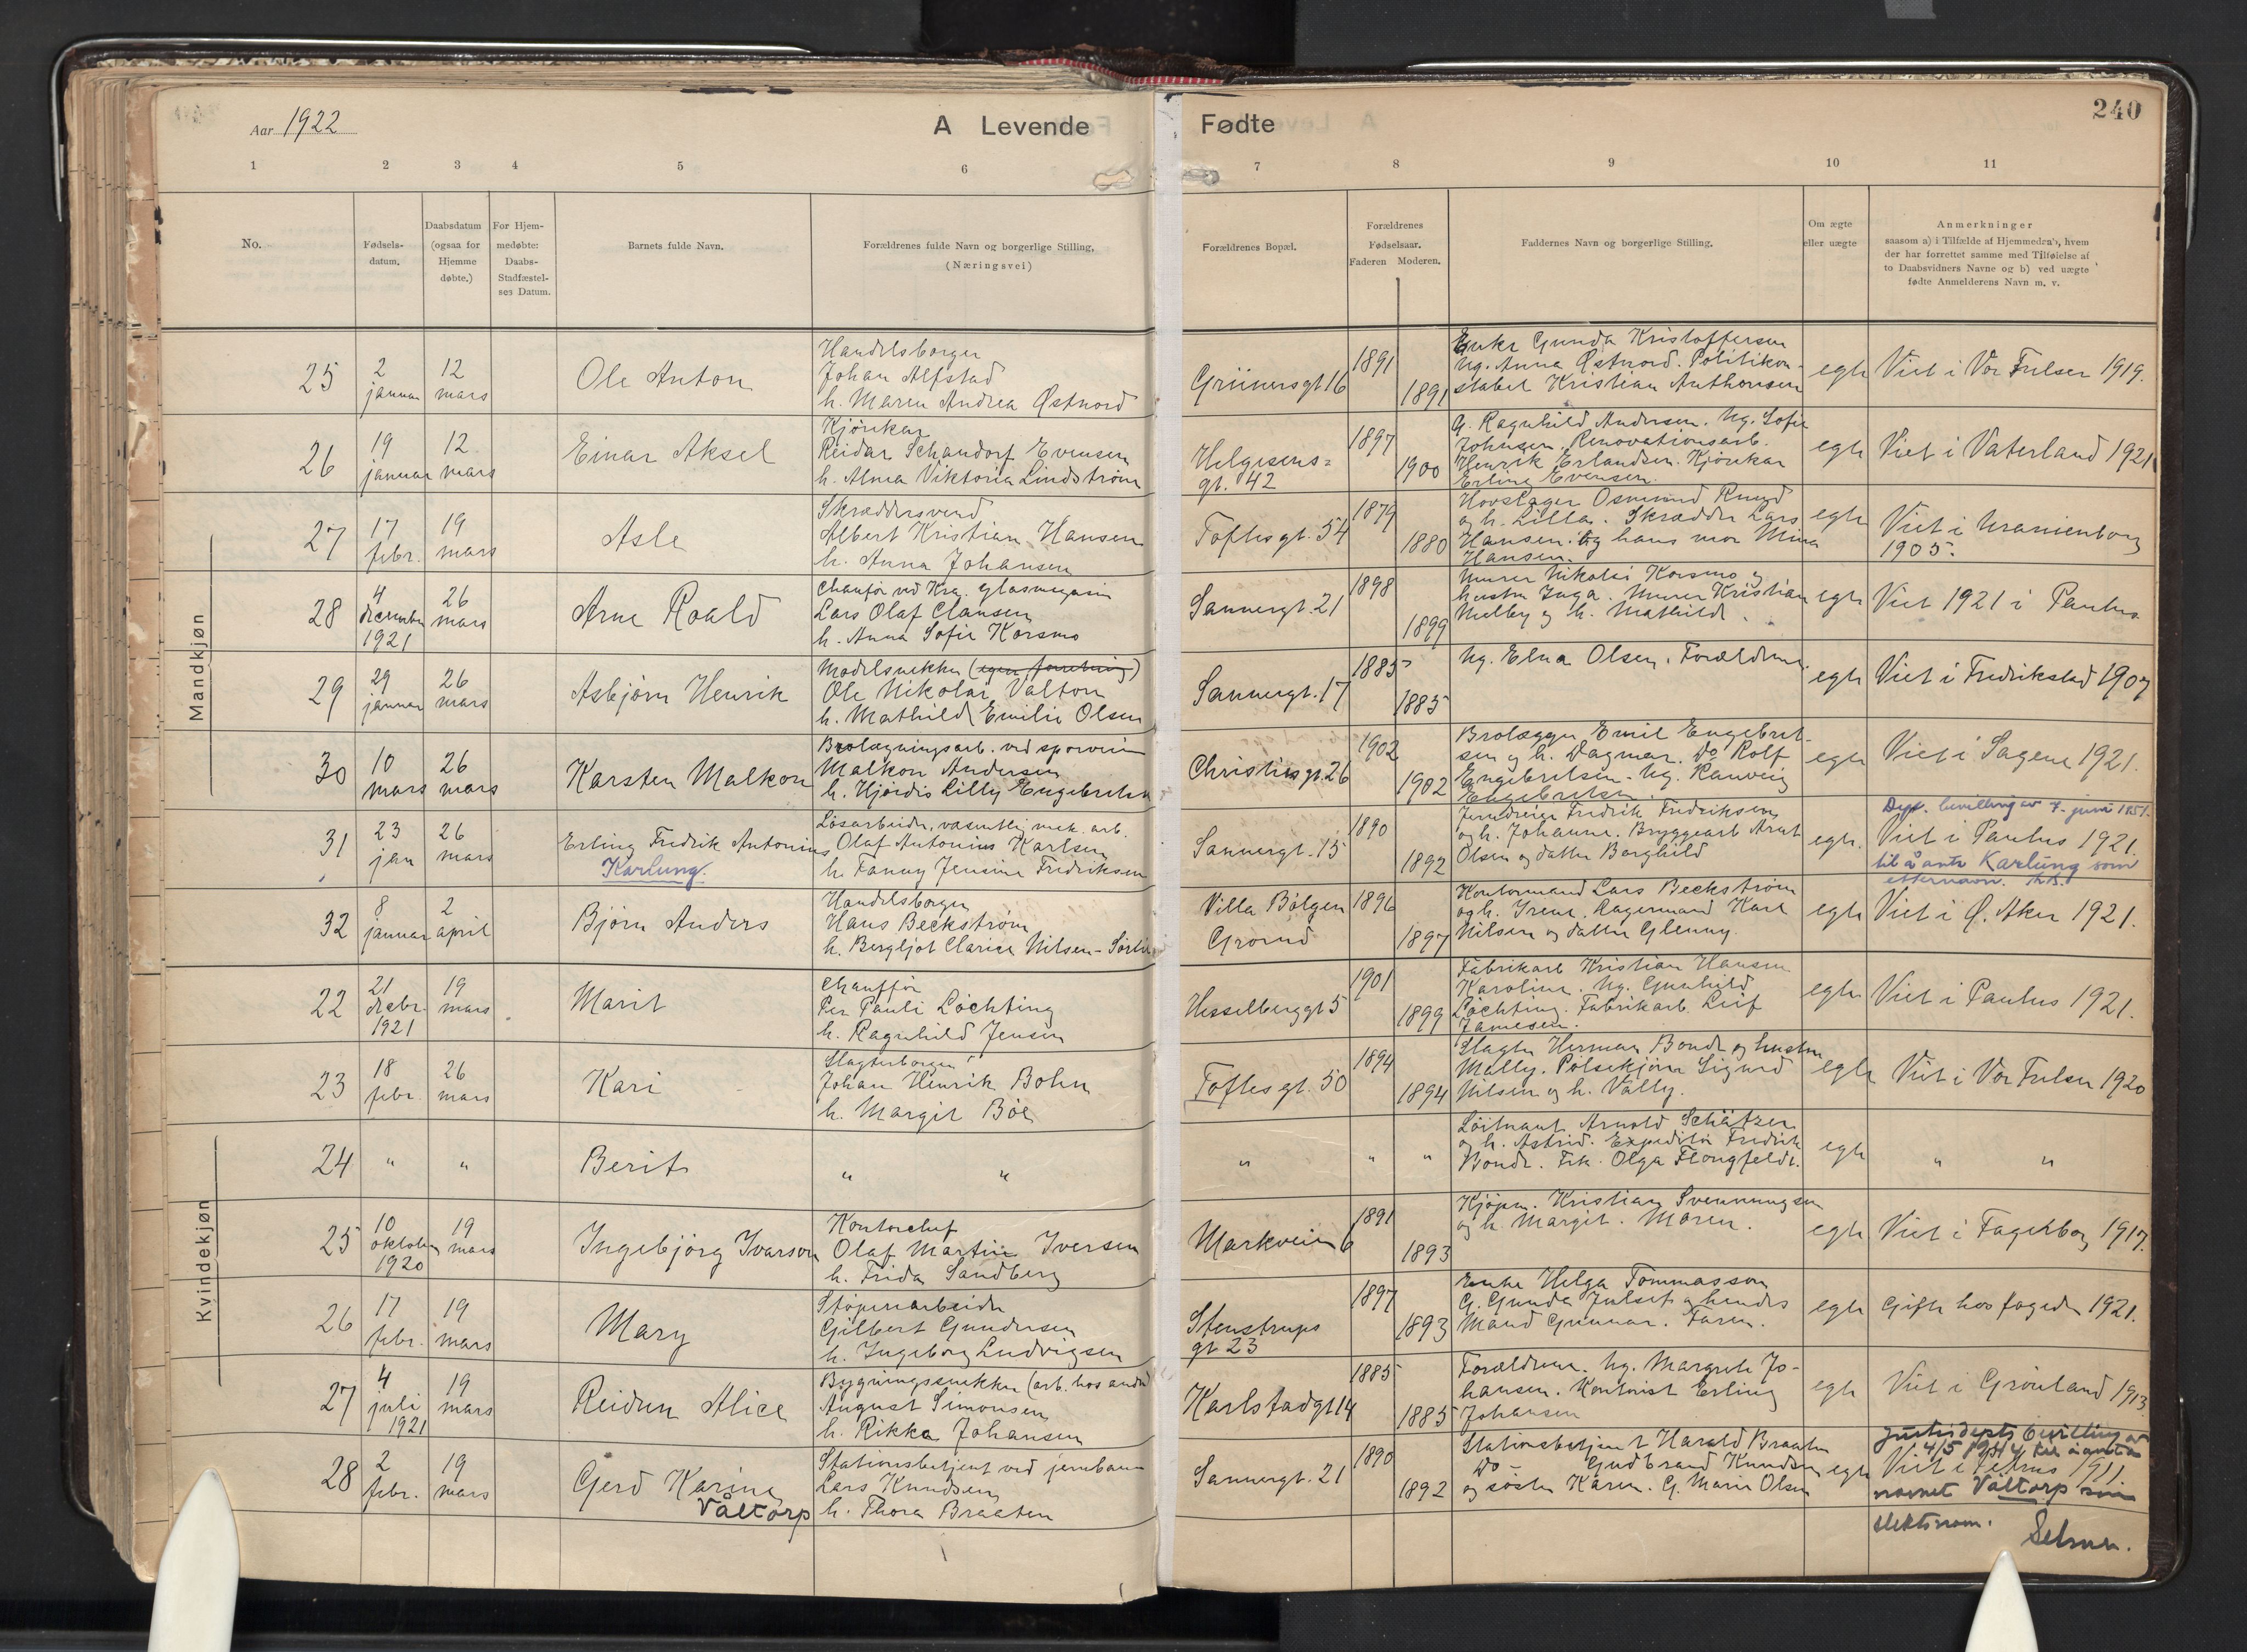 240
Aar 1922
A Levende
Fødte
1 2 3 4 5 6 7 8 9 10 11
No.
Fødsels-
datum.
Daabsdatum
(ogsaa for
Hjemme
døbte.)
For Hjem-
medøbte:
Daabs-
Stadfæstel-
ses Datum.
Barnets fulde Navn.
Forældrenes fulde Navn og borgerlige Stilling,
(Næringsvei)
Forældrenes Bopæl.
Forældrenes
Fødselsaar.
Faderen Moderen.
Faddernes Navn og borgerlige Stilling.
Om ægte
eller uægte
Anmerkninger
saasom a) i Tilfælde af Hjemmedaab, hvem
der har forrettet samme med Tilføielse af
to Daabsvidners Navne og b) ved uægte
fødte Anmelderens Navn m. v.
Mandkjøn
25
2
januar
12
mars
Ole Anton
Handelsborger
Johan Alfstad
h. Maren Andrea Østnord
Grünersgt 16
1891
1891
Enke Gunda Kristoffersen
Ug. Anna Østnord. Politikon-
stabel Kristian Anthonsen
egte
Viet i Vor Frelser 1919.
26
19
januar
12
mars
Einar Aksel
Kjørekar
Reidar Schandorf Evensen
h. Alma Viktoria Lindstrøm
Helgesens=
gt. 42
1897
1900
G. Ragnhild Andersen. Ug. Sofie
Johnsen. Renovationsarb.
Henrik Erlandsen. Kjørekar
Erling Evensen.
egte
Viet i Vaterland 1921
27
17
febr.
19
mars
Asle
Skræddersvend
Albert Kristian Hansen
h. Anna Johansen
Toftesgt. 54
1879
1880
Hovslager Osmund Ruud
og h. Lilla. Skrædder Lars
Hansen. og hans mor Mina
Hansen.
egte
Viet i Uranienborg
1905.
28
4
december
1921
26
mars
Arne Roald
Chauför ved Kra. glasmagasin
Lars Olaf Clausen
h. Anna Sofie Korsmo
Sannergt. 21
1898
1899
Murer Nikolai Korsmo og
hustru Inga. Murer Kristian
Melby og h. Mathilde.
egte
Viet 1921 i Paulus.
29
29
januar
26
mars
Asbjørn Henrik
Modelsnekker (egen forretning)
Ole Nikolai Valton
h. Mathilde Emilie Olsen
Sannergt. 17
1885
1885
Ug. Elna Olsen. Forældrene.
egte
Viet i Fredrikstad 1907
30
10
mars
26
mars
Karsten Malkon
Brolægningsarb. ved sporveien
Malkon Andersen
h. Hjørdis Lilly Engebretsen
Christiesgt. 26
1902
1902
Brolægger Emil Engebret-
sen og h. Dagmar. Do Rolf
Engebretsen. Ug. Ranveig
Engebretsen.
egte
Viet i Sagene 1921.
31
23
jan
26
mars
Erling Fredrik Antonius
Karlung.
Løsarbeider, væsentlig mek. arb.
Olaf Antonius Karlsen
h. Fanny Jensine Fredriksen
Sannergt. 15
1890
1892
Fredrik Fredriksen
og h. Johanne. Bryggearb Arnt
Olsen og datter Borghild
egte.
Dep. bevilling av 7. juni 1951.
Viet i Paulus 1921.
til å anta Karlung som
etternavn.
32
8
januar
2
april
Bjørn Anders
Handelsborger
Hans Beckstrøm
h. Bergljot Clarice Nilsen-Sørlie
Villa Bølgen
Grorud
1896
1897
Kontormand Lars Beckstrøm
og h. Irene. Lagermand Karl
Nilsen og datter Glenny.
egte
Viet i Ø. Aker 1921.
Kvindekjøn
22
21
decbr.
1921
19
mars
Marit
Chauffør
Per Pauli Løchting
h. Ragnhild Jensen
Hesselberggt 5
1901
1899
Fabrikarb Kristian Hansen
Karoline. Ug. Gunhild
Løchting. Fabrikarb. Leif
Jamesen.
egte
Viet i Paulus 1921.
23
18
febr.
26
mars
Kari
Slagterborger
Johan Henrik Bohn
h. Margit Bøe
Toftesgt. 50
1894
1894
Slagter Herman Bonde og hustru
Mally. Pølsekjører Sigurd
Nilsen og h. Vally.
egte
Viet i Vor Frelser 1920
24
"
"
Berit
" "
"
"
"
Løitnant Arnold Schätzer
og h. Astrid. Expeditør Fredrik
Bonde. Frk. Olga Flongfeldt.
egte
" "
25
10
oktober
1920
19
mars
Ingebjørg Ivarson
Kontorchef
Olaf Martin Iversen
h. Frida Sandberg
Markveien 6
1891
1893
Kjøpm. Kristian Svennungsen
og h. Margit. Moren.
egte
Viet i Fagerborg 1917.
26
17
febr.
19
mars
Mary
Støperiarbeider
Gilbert Gundersen
h. Ingeborg Ludvigsen
Stenstrups
gt 23
1897
1893
Enke Helga Tommasson
G. Gunda Julset og hendes
Mand Gunnar. Faren.
egte
Gifte hos fogden 1921.
27
4
juli
1921
19
mars
Reidun Alice
Bygningssnekker (arb. hos andre)
August Simonsen
h. Rikka Johansen
Karlstadgt 14
1885
1885
Forældrene. Ug. Margrete Jo-
hansen. Kontorist Erling
Johansen
egte
Viet i Grønland 1913
28
2
febr.
19
mars
Gerd Karine
Våltorp
Stationsbetjent ved jernbanen
Lars Knudsen
h. Thora Braaten
Sannergt. 21
1890
1892
Stationsbetjent Harald Braaten
Do - Gudbrand Knudsen
og søster Karen. G. Marie Olsen
egte
Justisdepts bevilling av
4/5 1944 til å anta
Viet i Petrus 1911.
navnet Våltorp som
slektsnavn.